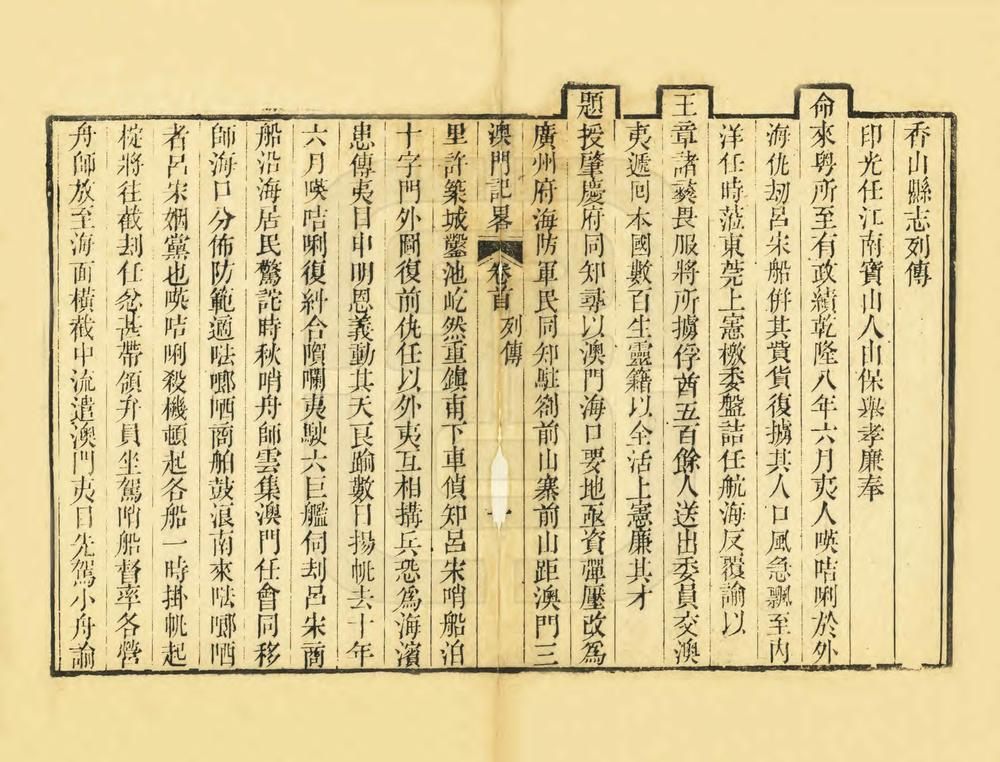 香山縣志列傳
印光任江南寶山人由保舉孝廉奉
命來粵所至有政績乾隆八年六月夷人𠸄咭唎於外
海仇刼呂宋船併其貲貨復擄其人口風急飄至內
洋任時蒞東莞上憲檄委盤詰任航海反覆諭以
王章諸夷畏服將所擄俘酋五百餘人送出委員交澳
夷遞回本國數百生靈籍以全活上憲廉其才
題授肇慶府同知尋以澳門海口要地亟資彈壓改為
廣州府海防軍民同知駐劄前山寨前山距澳門三
澳門記畧 卷首 列傳 一
里許築城鑿池屹然重鎮甫下車偵知呂宋哨船泊
十字門外圖復前仇任以外夷互相搆兵恐為海濱
患傳夷目申明恩義動其天良踰數日揚帆去十年
六月𠸄咭唎復糾合嚽囒夷駛六巨艦伺刦呂宋商
船沿海居民驚詫時秋哨舟師雲集澳門任會同移
師海口分佈防範適呿哴哂商舶鼓浪南來呿哴哂
者呂宋姻黨也𠸄咭唎殺機頓起各船一時掛帆起
椗將往截刦任忿甚帶領弁員坐駕哨船督率各營
舟師放至海面橫截中流遣澳門夷目先駕小舟諭